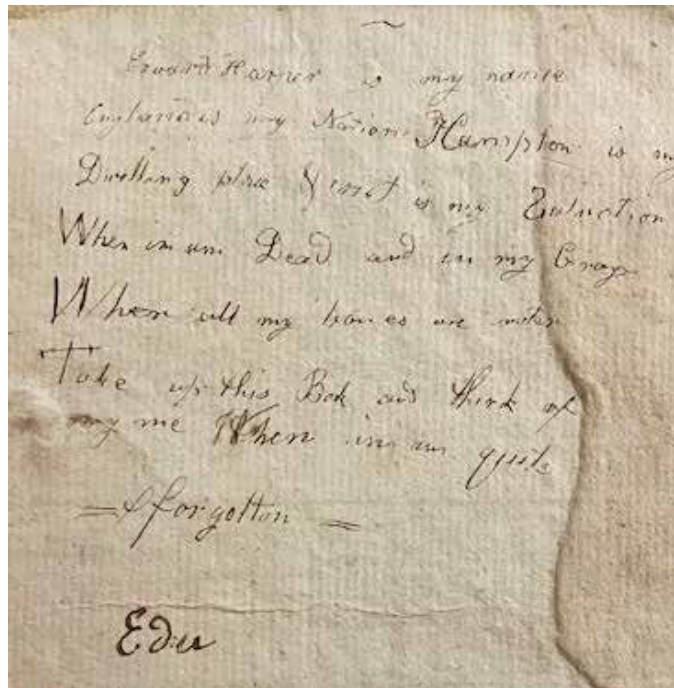 Edward Harner is my name
England is my Nation Hampton is my
Dwelling place & is my
When im um Dead and in my Grave
When all my bones are roten
Take up this Bok and think of
my me When im um quite
= forgotton =
Edw